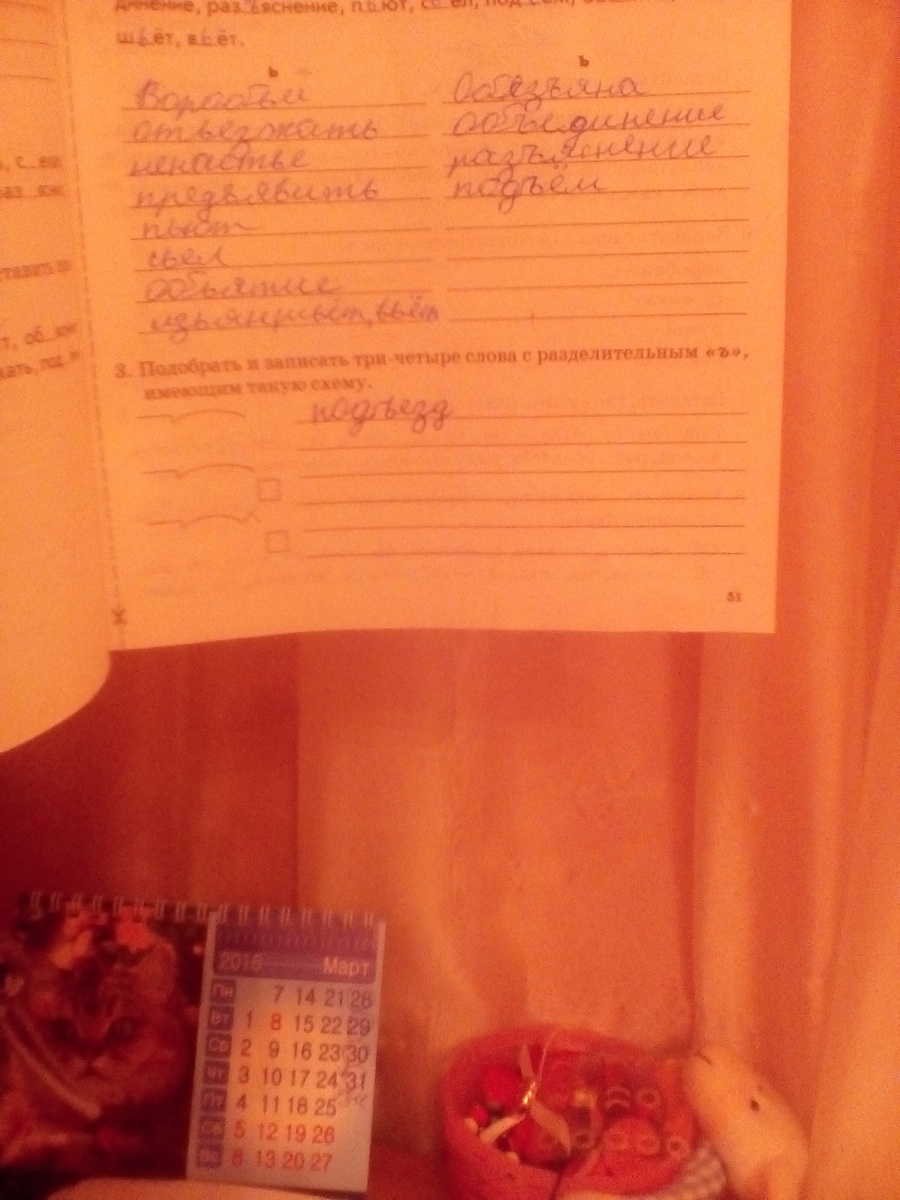 динение, раз ъяснение, пьют, с ел, под ём,
шьёт, вьёт.
ь ъ
Воробьи Обезьяна
отьезжать объединение
ненастье разъяснение
предьявить подъём
пьют
сьел
обьятие
изьян, шьёт, вьёт
, с еш
раз ян
ставить
т, об
кать, под
3. Подобрать и записать три-четыре слова с разделительным «ъ»,
имеющим такую схему.
подъезд
51
2016 Март
Пн 7 14 21 28
Вт 1 8 15 22 29
Ср 2 9 16 23 30
Чт 3 10 17 24 31
Пт 4 11 18 25
Сб 5 12 19 26
Вс 6 13 20 27